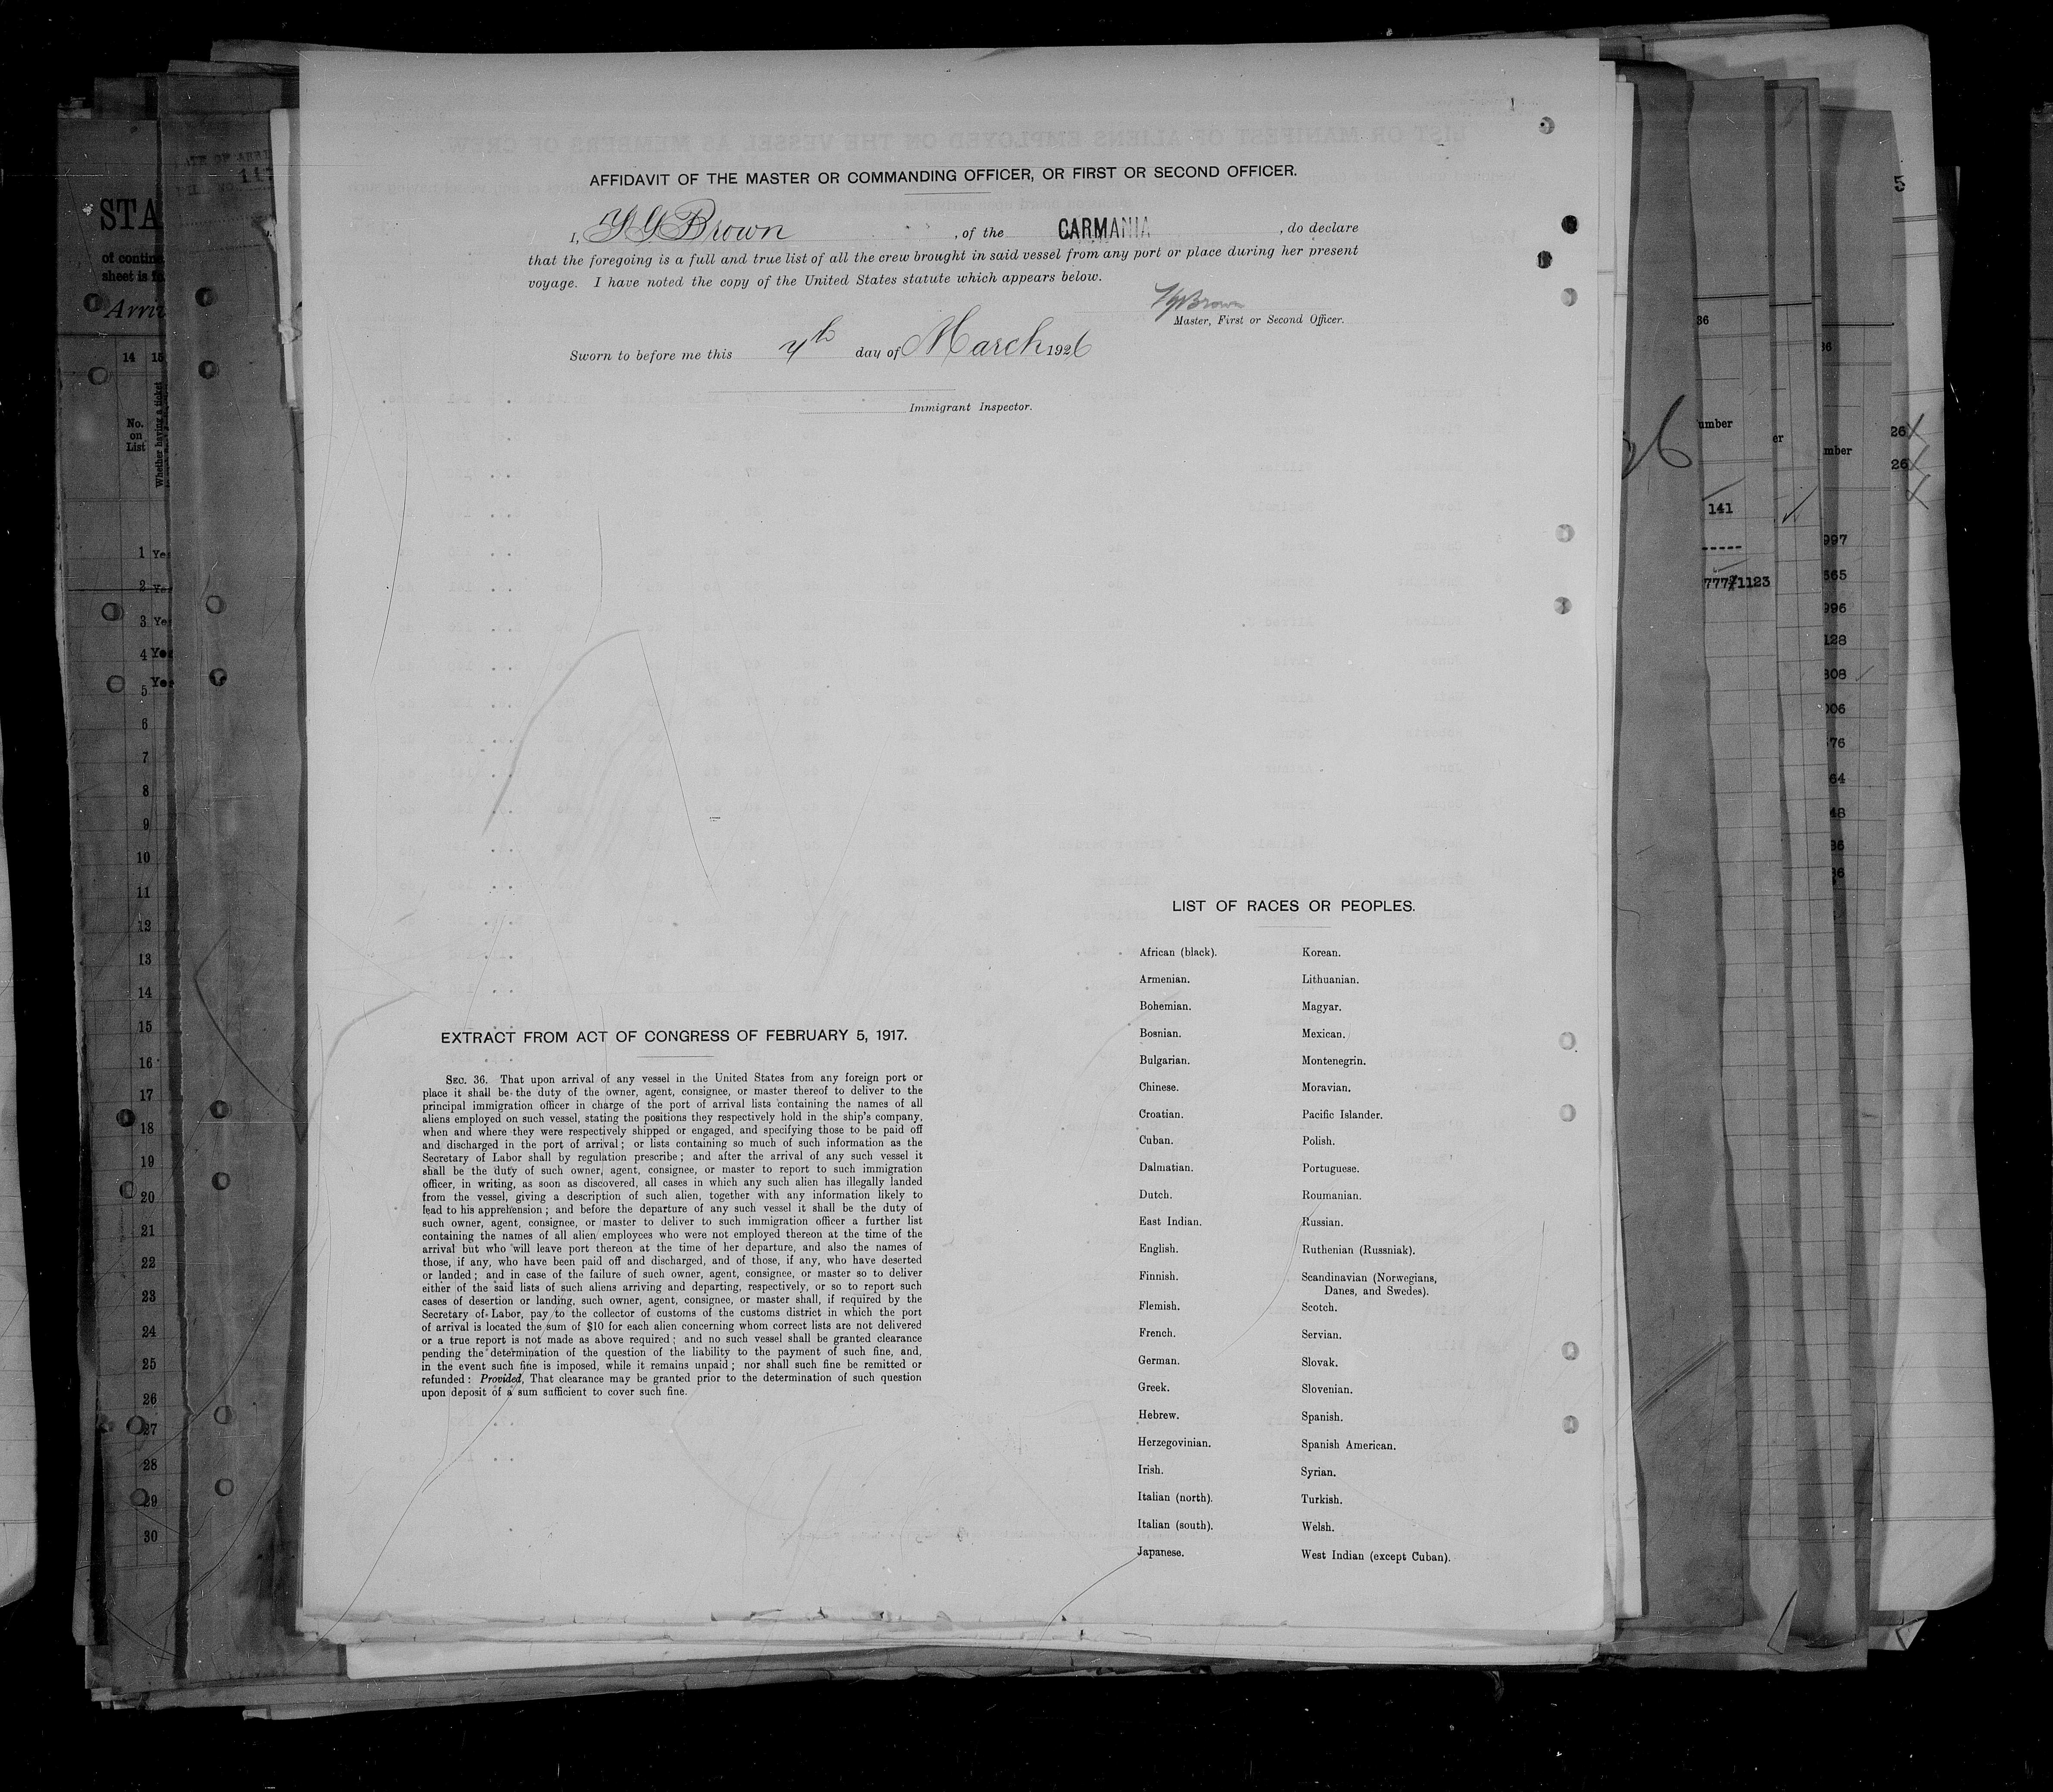 AFFIDAVIT OF THE MASTER OR COMMANDING OFFICER, OR FIRST OR SECOND OFFICER.
I, Brown, of the CARMANIA, do declare
that the foregoing is a full and true list of all the crew brought in said vessel from any port or place during her present
voyage. I have noted the copy of the United States statute which appears below.
Brown
Master, First or Second Officer.
Sworn to before me this day of March 1926
Immigrant Inspector.
LIST OF RACES OR PEOPLES.
African (black).
Armenian.
Bohemian.
Bosnian.
Bulgarian.
Chinese.
Croatian.
Cuban.
Dalmatian.
Dutch.
East Indian.
English.
Finnish.
Flemish.
French.
German.
Greek.
Hebrew.
Herzegovinian.
Irish.
Italian (north).
Italian (south).
Japanese.
Korean.
Lithuanian.
Magyar.
Mexican.
Montenegrin.
Moravian.
Pacific Islander.
Polish.
Portuguese.
Roumanian.
Russian.
Ruthenian (Russniak).
Scandinavian (Norwegians,
Danes, and Swedes).
Scotch.
Servian.
Slovak.
Slovenian.
Spanish.
Spanish American.
Syrian.
Turkish.
Welsh.
West Indian (except Cuban).
EXTRACT FROM ACT OF CONGRESS OF FEBRUARY 5, 1917.
SEC. 36. That upon arrival of any vessel in the United States from any foreign port or
place it shall be the duty of the owner, agent, consignee, or master thereof to deliver to the
principal immigration officer in charge of the port of arrival lists containing the names of all
aliens employed on such vessel, stating the positions they respectively hold in the ship's company,
when and where they were respectively shipped or engaged, and specifying those to be paid off
and discharged in the port of arrival; or lists containing so much of such information as the
Secretary of Labor shall by regulation prescribe; and after the arrival of any such vessel it
shall be the duty of such owner, agent, consignee, or master to report to such immigration
officer, in writing, as soon as discovered, all cases in which any such alien has illegally landed
from the vessel, giving a description of such alien, together with any information likely to
lead to his apprehension; and before the departure of any such vessel it shall be the duty of
such owner, agent, consignee, or master to deliver to such immigration officer a further list
containing the names of all alien employees who were not employed thereon at the time of the
arrival but who will leave port thereon at the time of her departure, and also the names of
those, if any, who have been paid off and discharged, and of those, if any, who have deserted
or landed; and in case of the failure of such owner, agent, consignee, or master so to deliver
either of the said lists of such aliens arriving and departing, respectively, or so to report such
cases of desertion or landing, such owner, agent, consignee, or master shall, if required by the
Secretary of Labor, pay to the collector of customs of the customs district in which the port
of arrival is located the sum of $10 for each alien concerning whom correct lists are not delivered
or a true report is not made as above required; and no such vessel shall be granted clearance
pending the determination of the question of the liability to the payment of such fine, and,
in the event such fine is imposed, while it remains unpaid; nor shall such fine be remitted or
refunded: Provided, That clearance may be granted prior to the determination of such question
upon deposit of a sum sufficient to cover such fine.